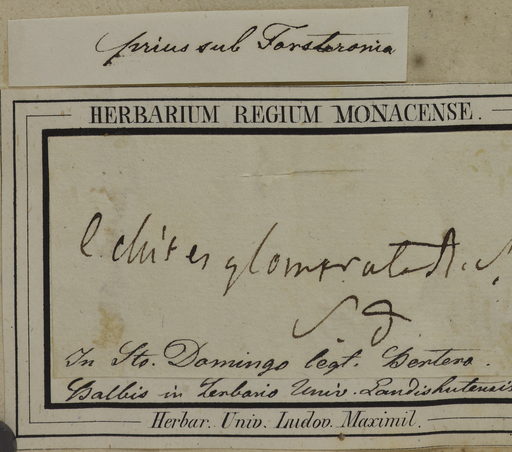 prius sub Forsteronia
HERBARIUM REGIUM MONACENSE.
Echites glomerata
In Sto. Domingo legt. Bertero.
Balbis in herbario Univ. Landishutensis
Herbar. Univ. Ludov. Maximil.